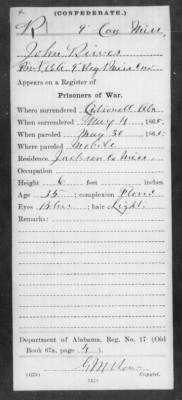 (CONFEDERATE.)
R 9 Cav Miss.
John
Appears on a Register of
Prisoners of War.
Where surrendered Citronell Ala
When surrendered May 4, 1865.
When paroled May 30, 1865.
Where paroled Mobile
Residence Jackson Co Miss
Occupation
Height 6 feet inches.
Age 35; complexion
Eyes Blue; hair Light.
Remarks:
Department of Alabama, Reg. No. 17 (Old
Book 67a, page 4).
Copyist.